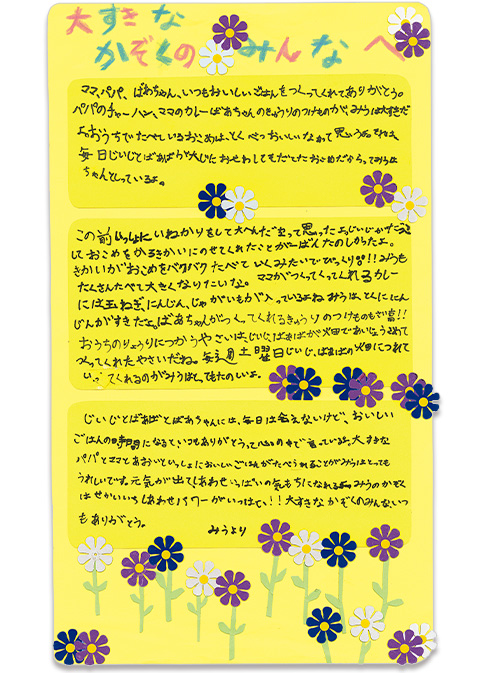 大すきな
かぞくのみんなへ
ママ、パパ、ばあちゃん、いつもおいしいごはんをつくってくれてありがとう。
パパのチャーハン、ママのカレーばあちゃんのきゅうりのつけものが、みうは大すきだ
よ。おうちでたべているおこめは、とくべつおいしいなって思うよ。それは、
毎日じいじとばあばが大じにおせわしてもだしたおこめだからってみうは
ちゃんとしっているよ。
この前いっしょにいねかりをして大へんだなって思ったよ。じいじがだっこ
しておこめをかるきかいにのせてくれたことが一ばんたのしかったよ。
きかいがおこめをバクバクたべていくみたいでびっくり!!みうも
たくさんたべて大きくなりたいな。ママがつくってくれるカレー
には玉ねぎ、にんじん、じゃがいもが入っているよねみうは、とくににん
じんがすきだよ。ばあちゃんがつくってくれるきゅうりのつけものもだ
おうちのりょうりにつかうやさいは、じいじ、ばあばが畑であいじょうこめて
つくってくれたやさいだね。毎週土曜日じいじ、ばあばの畑につれて
いってくれるのがみうはとってもたのしいよ。
じいじとばあばとばあちゃんには、毎日は会えないけど、おいしい
ごはんの時間になるといつもありがとうって心の中で言っているよ。大すきな
パパとママとあおいといっしょにおいしいごはんがたべられることがみうはとっても
うれしいです。元気が出てしあわせいっぱいの気もちになれるよ。みうのかぞく
はせかいいちしあわせパワーがいっぱい、!!大すきなかぞくのみんないつ
もありがとう。
みうより